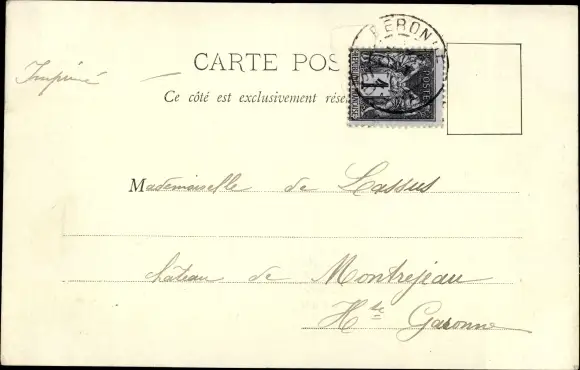 PERONNE
CARTE POS
Imprimé
Ce côté est exclusivement rése
POSTE
1
Mademoiselle de Lassus
château de Montrejeau
Hte Garonne